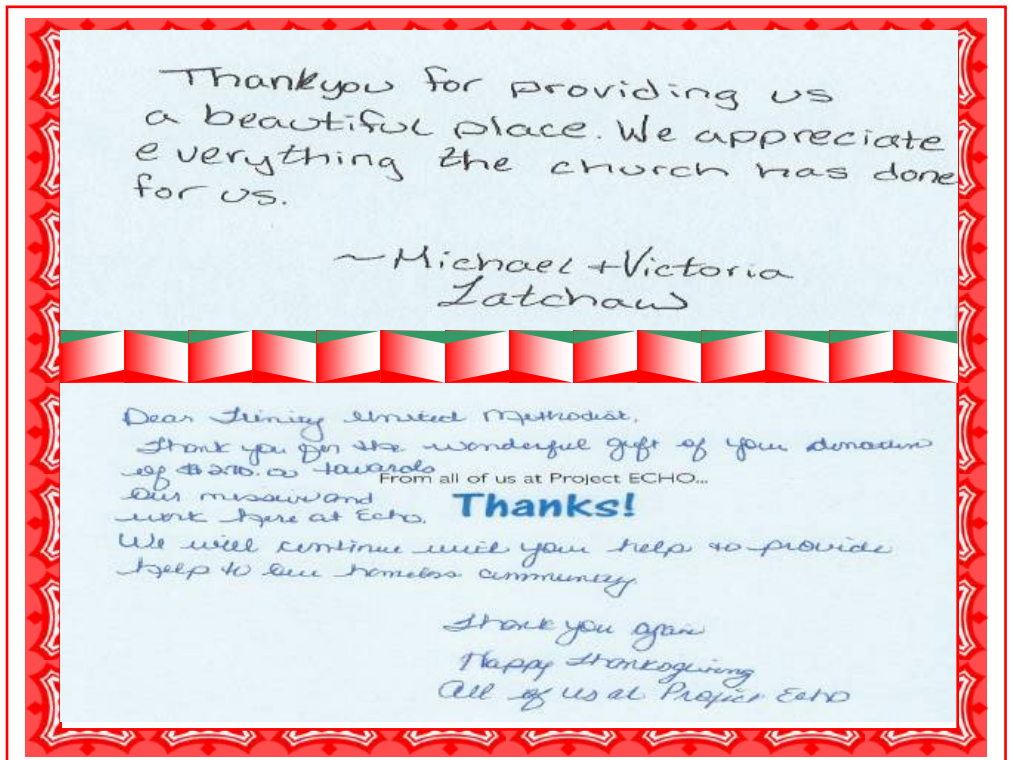 Thankyou for providing us
a beautiful place. We appreciate
everything the church has done
for us.
~Michael + Victoria
Latchaw
Dear Trinity United Methodist,
Thank you for the wonderful gift of your donation
of $270.00 towards
From all of us at Project ECHO...
our mission and
Thanks!
work here at Echo.
We will continue with your help to provide
help to our homeless community
Thank you again
Happy Thanksgiving
All of us at Project Echo